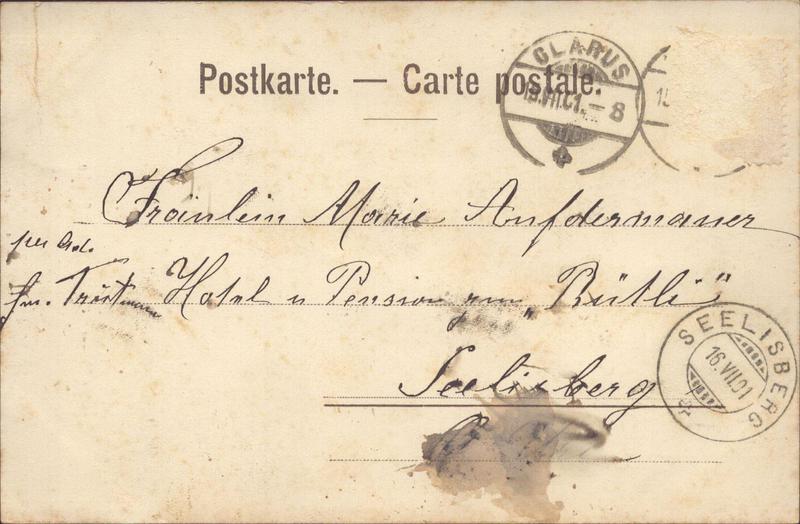 Postkarte. — Carte postale.
GLARUS
15.VII.01.–8
15
Fräulein Marie Aufdermauer
per Ad.
Hotel u Pension zum „Rütli"
Seelisberg
SEELISBERG
16.VII.01